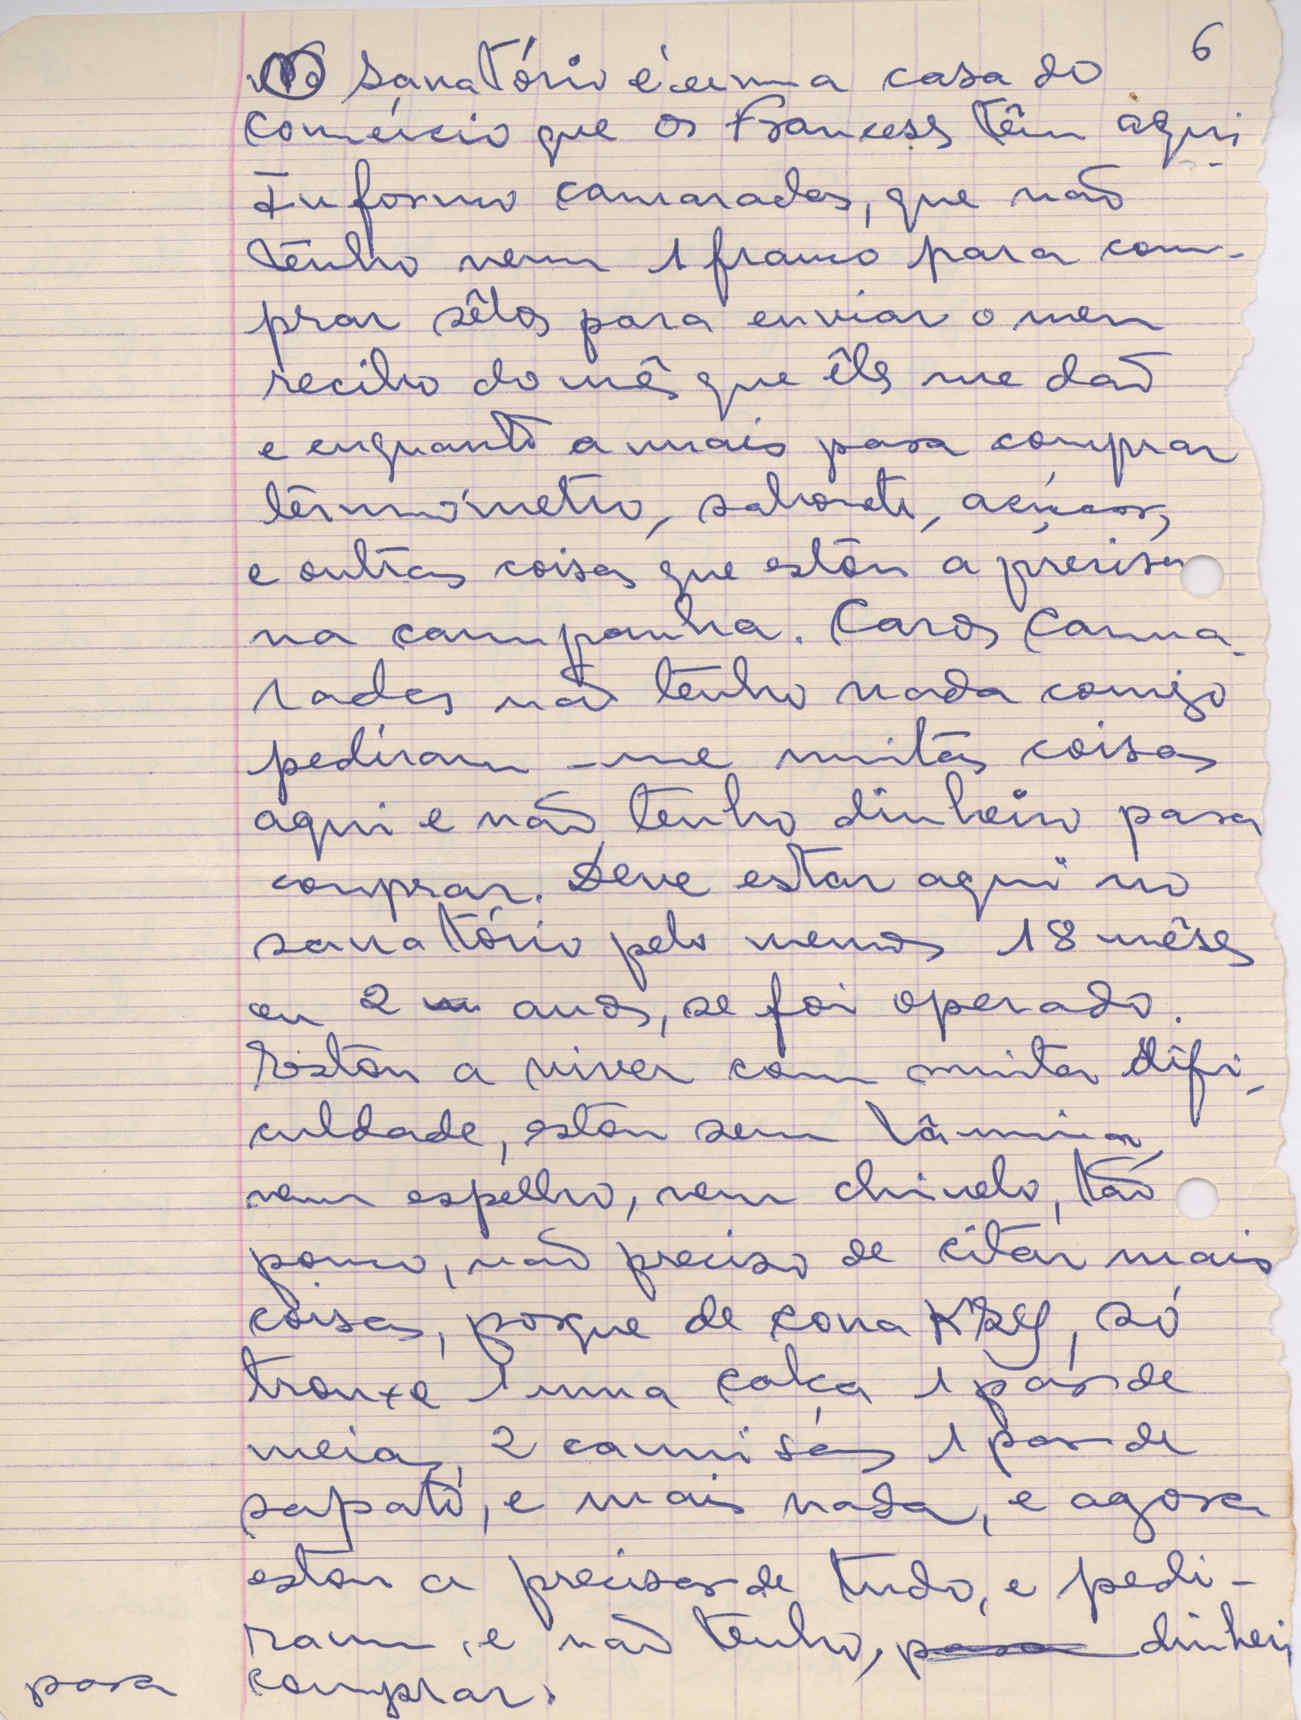 6
O Sanatório é uma casa do
Comércio que os Franceses têm aqui
Informo camaradas, que não
tênho nem 1 franco para com-
prar sêlos para enviar o meu
recibo do mês que êles me dão
e enquanto a mais para comprar
têrmómetro, sabonete, açúcar,
e outras coisas que estou a precisar
na campanha. Caros Cama-
radas não tênho nada comigo
pediram-me muitas coisas
aqui e não tenho dinheiro para
comprar. Deve estar aqui no
sanatório pelo menos 18 mêses
ou 2 anos, se foi operado.
Estou a viver com muita difi-
culdade, estou sem lâmina
nem espelho, nem chinelo, tão
pouco, não preciso de citar mais
coisas, porque de Cona Kry, só
trouxe 1 uma calça 1 par de
meias, 2 camisas 1 par de
sapato, e mais nada, e agora
estou a precisar de tudo, e pedi-
ram, e não tenho, dinheiro
para comprar.